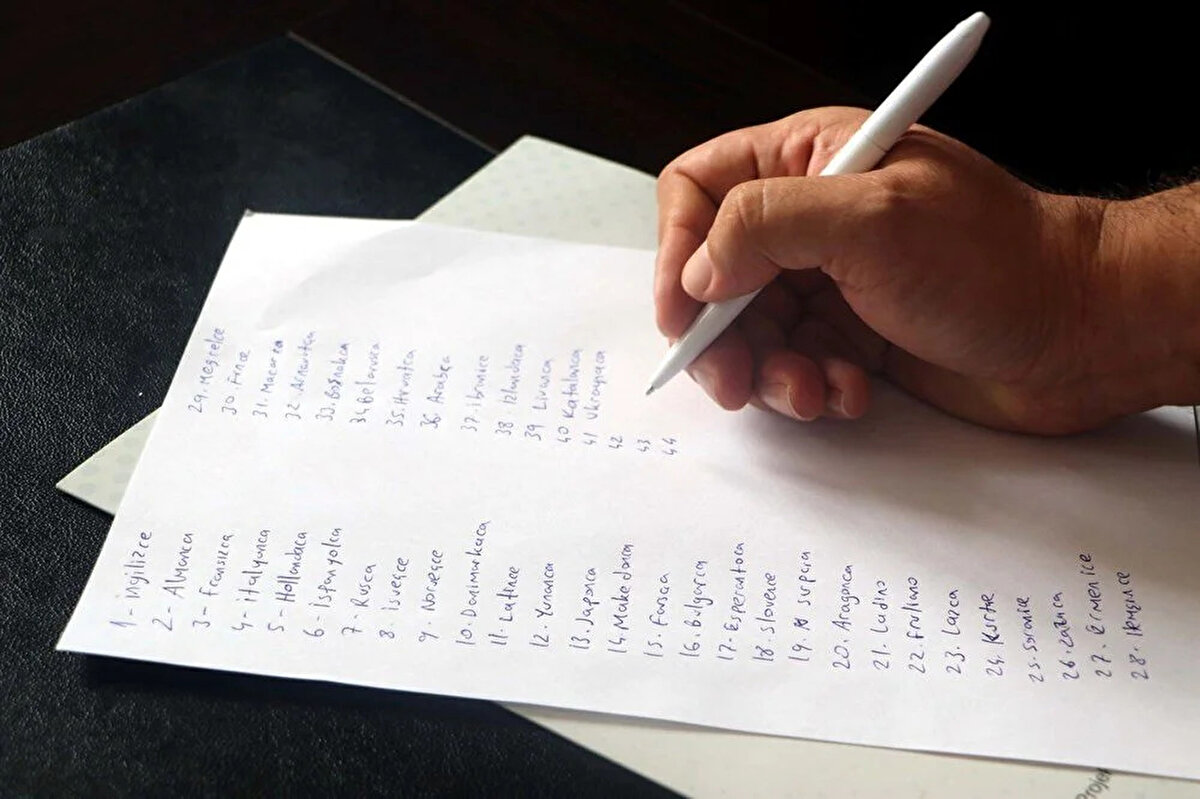 1 - İngilizce
2 - Almanca
3 - Fransızca
4 - italyanca
5 - Hollandaca
6 - İspanyolca
7 - Rusca
8. isveçce
9. Norveçce
10. Danimarkaca
11. Latince
12. Yunanca
13. Japonca
14. Makedonca
15. Farsca
16. Bulgarca
17. Esperantoca
18. Slovence
19. Sırpca
20. Aragonca
21. Ladino
22. Friuliano
23. Lazca
24. Kürtçe
25.
26. Zazaca
27. Ermenice
28.
29. Megrelce
30 Fince
31. Macarca
32. Arnavutça
33. Boşnakca
34 Belarusca
35. Hırvatca
36. Arabça
37. ibranice
38. İzlandaca
39 Livca
40 Katalanca
41 Ukraynaca
42
43
44
Projer